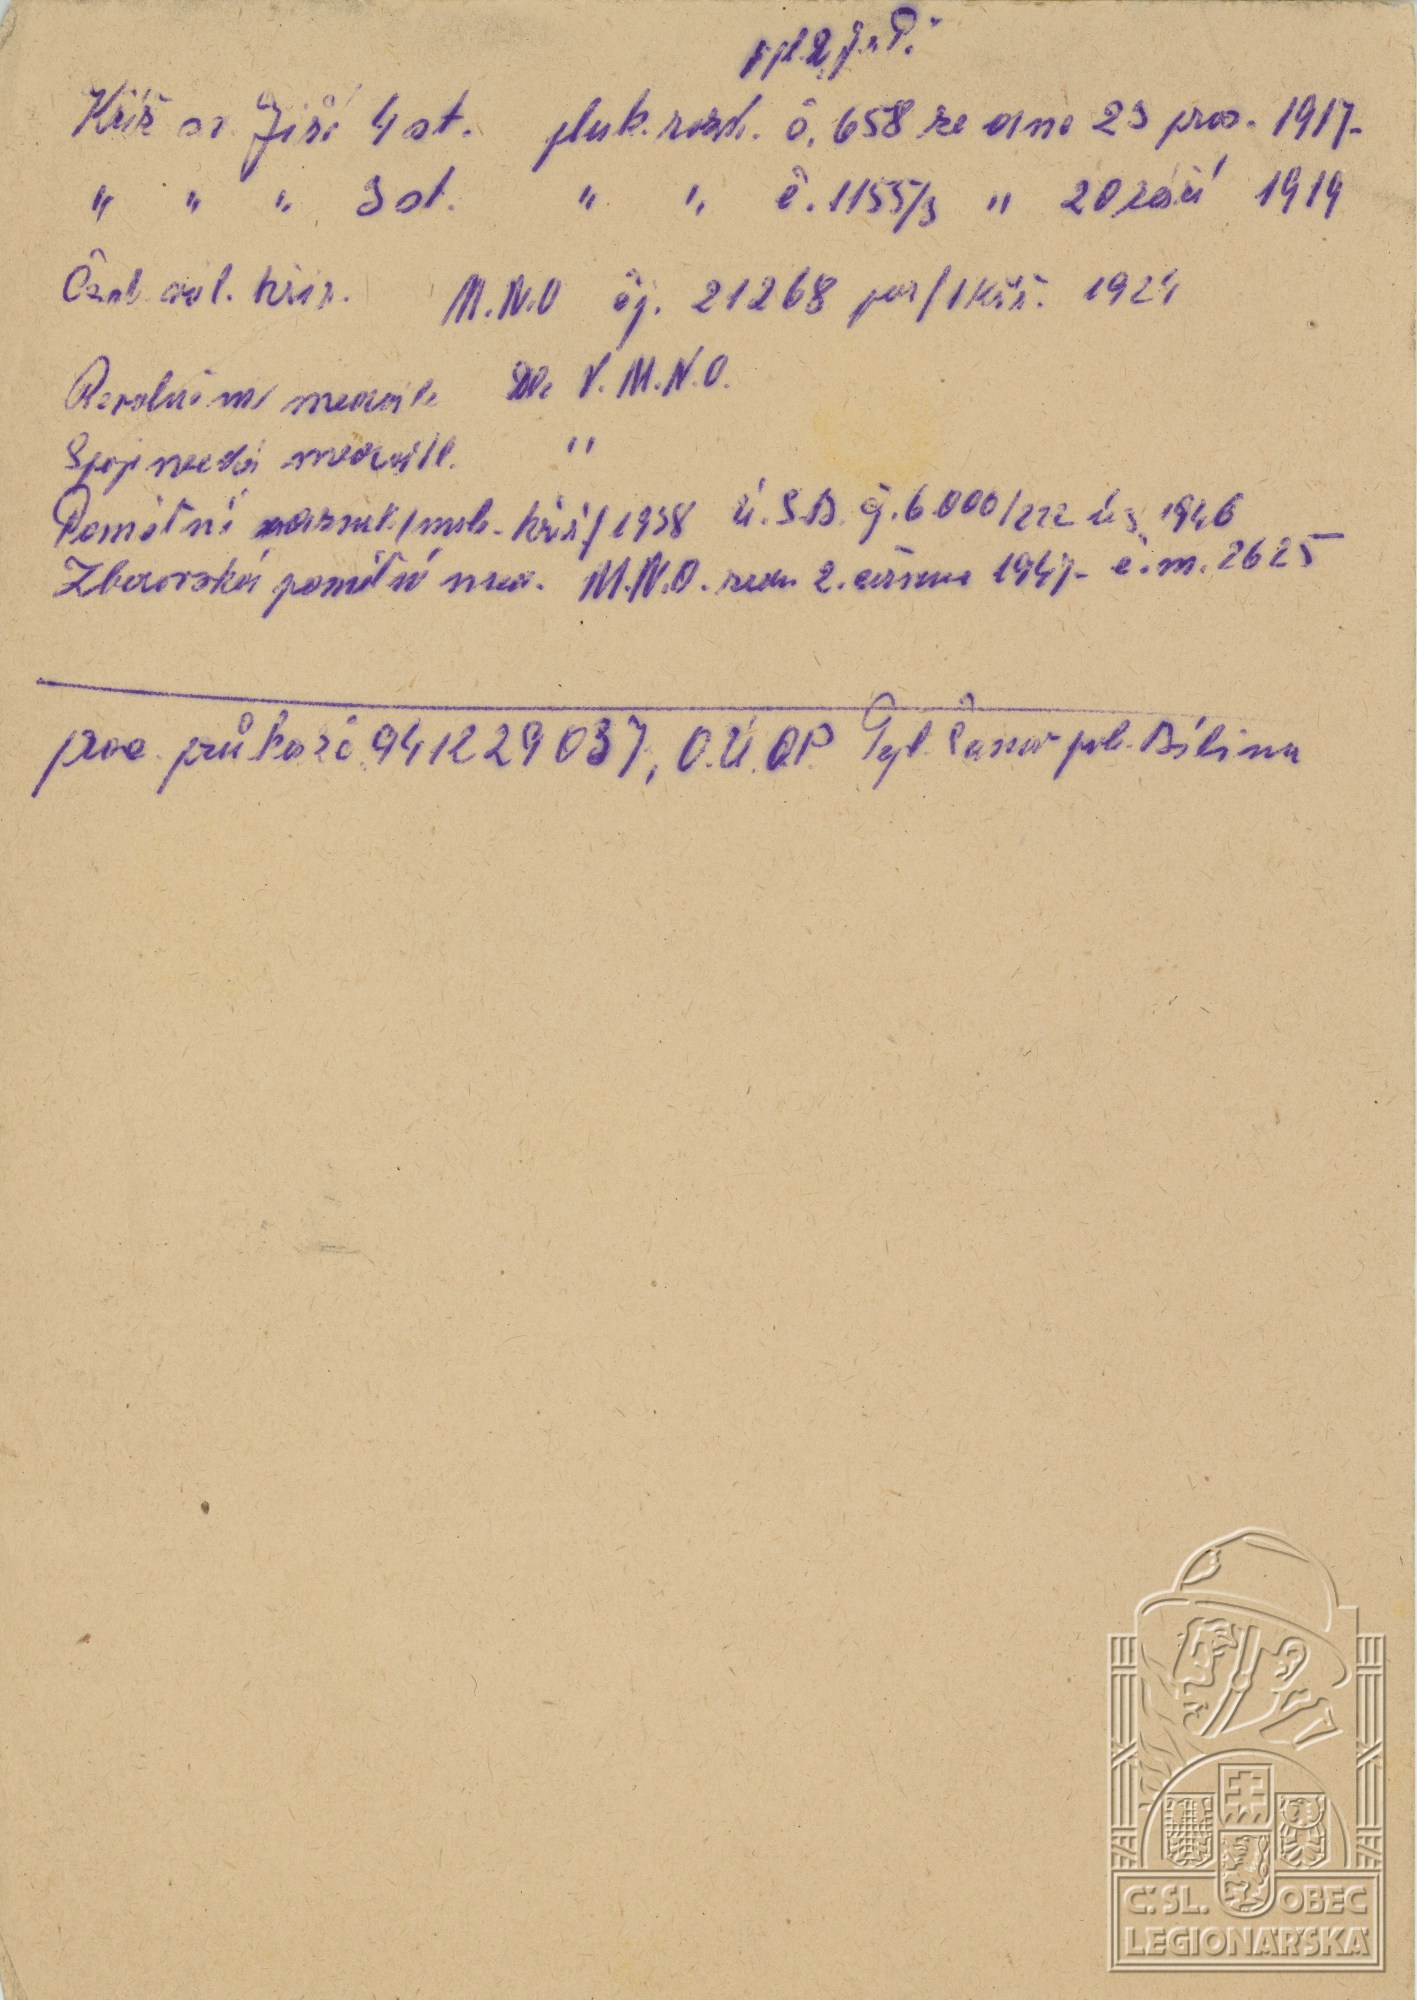 Kříž sv. Jiří 4 st. pluk. rozk. č. 658 ze dne 23 pros. 1917.
" " " 3 st. " " č. 1155/3 " 20 září 1919
Česk. vál. kříž. M.N.O čj. 21268 1924
Revoluční medaile Dle V. M.N.O.
Spojenecká medaile. "
Pamětní odznak/mob. kříž/1938 čj. 6000/ 1946
Zborovská pamětní med. M.N.O. ze dne 2. června 1947. č. m. 2625
prac. průkaz č. 941229037, O.Ú.O.P. Tepl. Šanov pob. Bílina
Č.SL. OBEC
LEGIONÁŘSKÁ